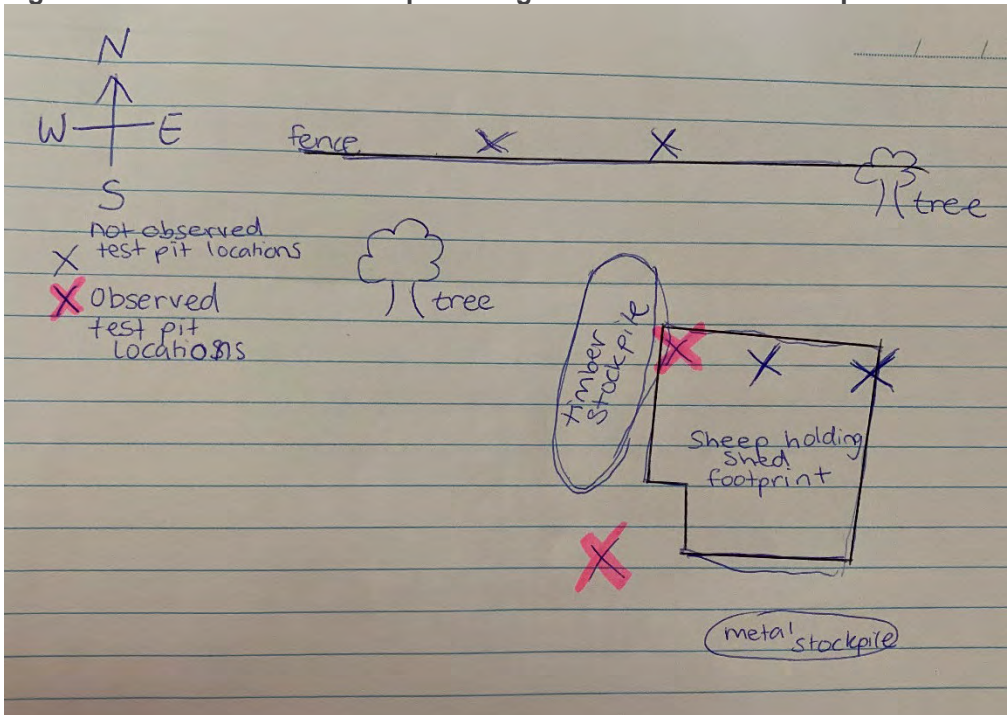 N
W E
S
fence
tree
Not observed
test pit locations
Observed
test pit
locations
tree
timber
stockpile
Sheep holding
shed
footprint
metal stockpile